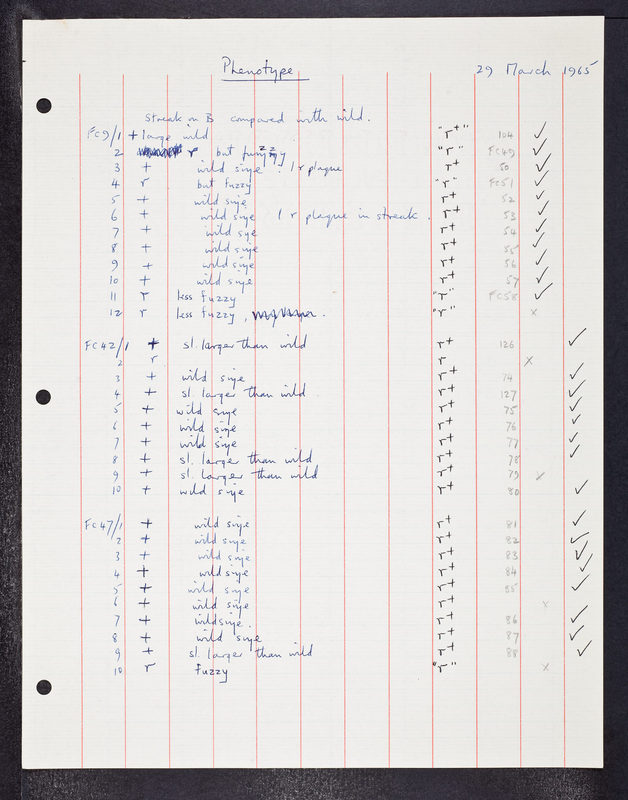 Phenotype 29 March 1965
Streak on B compared with wild.
FC9/1 + large wild "r+" 104 ✓
2 r but fuzzy "r" FC49 ✓
3 + wild size. 1 r plaque r+ 50 ✓
4 r but fuzzy "r" FC51 ✓
5 + wild size r+ 52 ✓
6 + wild size 1 r plaque in streak. r+ 53 ✓
7 + wild size r+ 54 ✓
8 + wild size r+ 55 ✓
9 + wild size r+ 56 ✓
10 + wild size r+ 57 ✓
11 r less fuzzy "r" FC58 ✓
12 r less fuzzy, "r" x
FC42/1 + sl. larger than wild r+ 126 ✓
2 r r x
3 + wild size r+ 74 ✓
4 + sl. larger than wild r+ 127 ✓
5 + wild size r+ 75 ✓
6 + wild size r+ 76 ✓
7 + wild size r+ 77 ✓
8 + sl. larger than wild r+ 78 ✓
9 + sl. larger than wild r+ 79 x
10 + wild size r+ 80 ✓
FC47/1 + wild size r+ 81 ✓
2 + wild size r+ 82 ✓
3 + wild size r+ 83 ✓
4 + wild size r+ 84 ✓
5 + wild size r+ 85 ✓
6 + wild size r+ x
7 + wild size. r+ 86 ✓
8 + wild size r+ 87 ✓
9 + sl. larger than wild r+ 88 ✓
10 r fuzzy "r" x